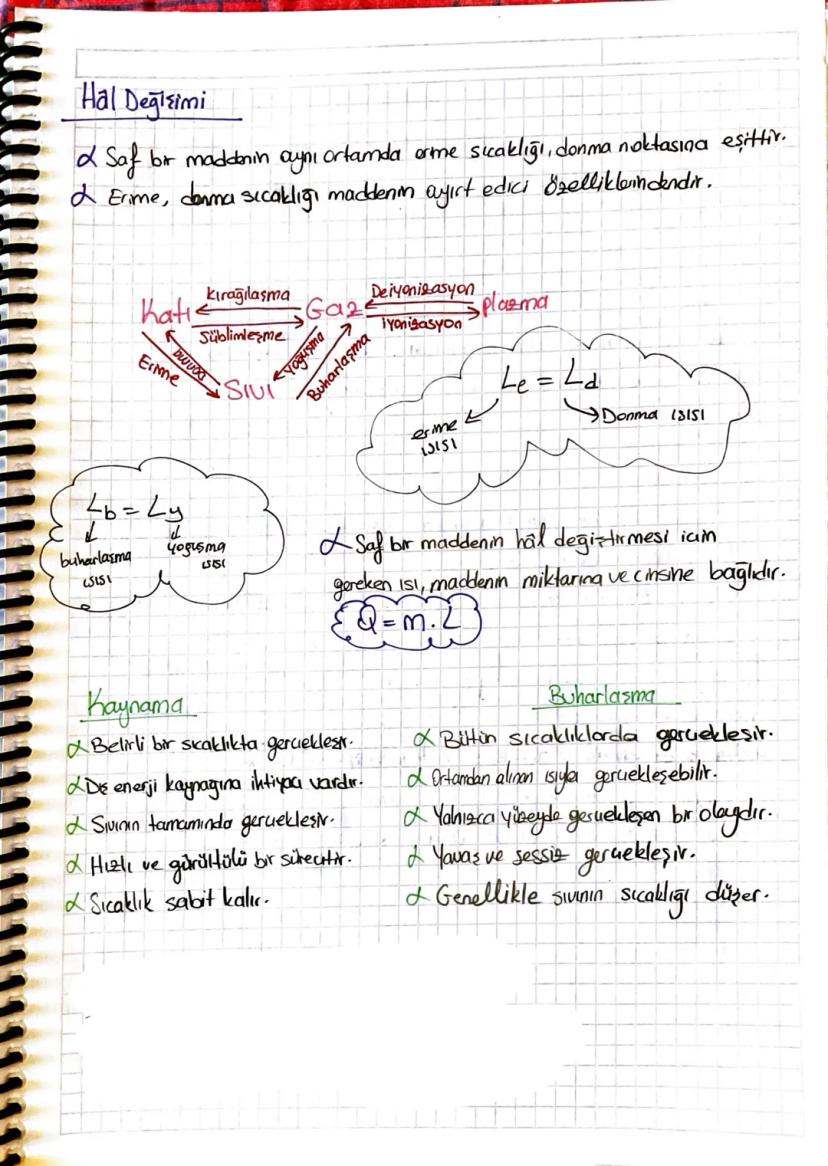 Hal Değişimi
α Saf bir maddenin aynı ortamda erime sıcaklığı, donma noktasına eşittir.
α Erime, donma sıcaklığı maddenin ayırt edici özelliklerindendir.
Kırağılaşma
Deiyonizasyon
Katı
Gaz
plazma
Süblimleşme
İyonizasyon
Erime
Donma
Yoğuşma
Buharlaşma
Sıvı
Le = Ld
erime
ısısı
Donma ısısı
Lb = Ly
buharlaşma
ısısı
yoğuşma
ısısı
α Saf bir maddenin hâl değiştirmesi için
gereken ısı, maddenin miktarına ve cinsine bağlıdır.
Q = m . L
Kaynama
α Belirli bir sıcaklıkta gerçekleşir.
α Dış enerji kaynağına ihtiyacı vardır.
α Sıvının tamamında gerçekleşir.
α Hızlı ve gürültülü bir süreçtir.
α Sıcaklık sabit kalır.
Buharlaşma
α Bütün sıcaklıklarda gerçekleşir.
α Ortamdan alınan ısıyla gerçekleşebilir.
α Yalnızca yüzeyde gerçekleşen bir olaydır.
α Yavaş ve sessiz gerçekleşir.
α Genellikle sıvının sıcaklığı düşer.